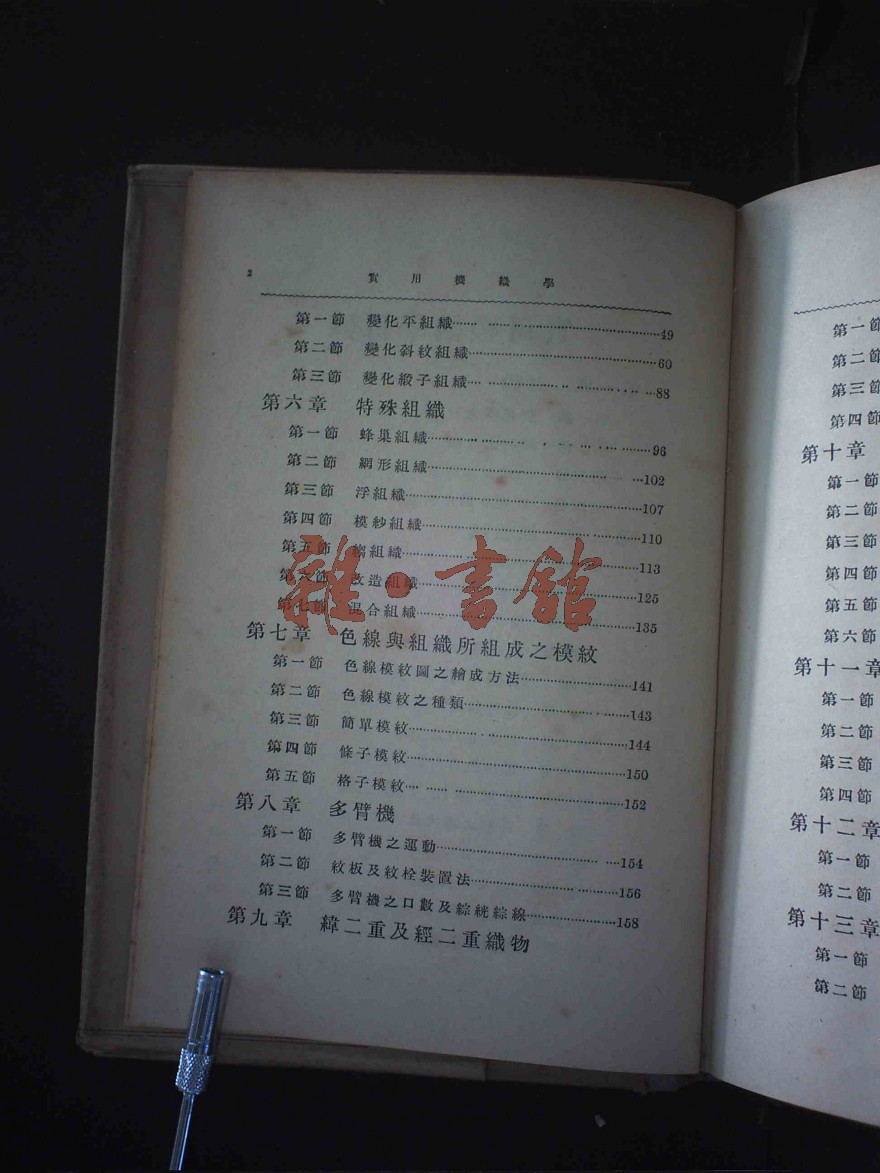 2 實用機織學
第一節 變化平組織……49
第二節 變化斜紋組織……60
第三節 變化緞子組織……88
第六章 特殊組織
第一節 蜂巢組織……96
第二節 網形組織……102
第三節 浮組織……107
第四節 模紗組織……110
第五節 組織……113
第六節 改造組織……125
第七節 混合組織……135
雜·書館
第七章 色線與組織所組成之模紋
第一節 色線模紋圖之繪成方法……141
第二節 色線模紋之種類……143
第三節 簡單模紋……144
第四節 條子模紋……150
第五節 格子模紋……152
第八章 多臂機
第一節 多臂機之運動……154
第二節 紋板及紋栓裝置法……156
第三節 多臂機之口數及綜絖綜線……158
第九章 緯二重及經二重織物
第一節
第二節
第三節
第四節
第十章
第一節
第二節
第三節
第四節
第五節
第六節
第十一章
第一節
第二節
第三節
第四節
第十二章
第一節
第二節
第十三章
第一節
第二節